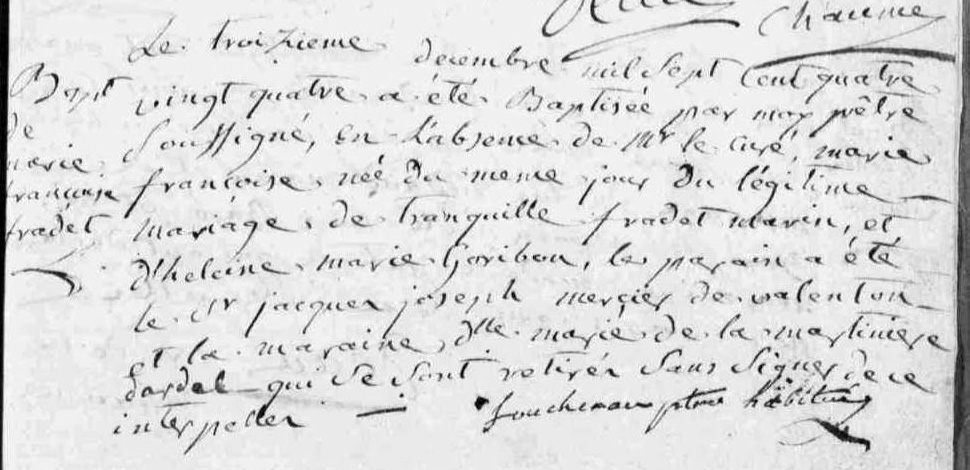 Chaume
Bapt
de
marie
françoise
fradet
Le troizieme decembre mil sept cent quatre
vingt quatre a été Baptisée par moy prêtre
soussigné, en l'absence de Mr le curé, marie
françoise née du meme jour du légitime
mariâge de tranquille fradet marin, et
d'heleine marie Goribon, le parain a été
le Sr jacques joseph mercier de valenton
et la maraine dlle marie de la martiniere
dardel qui se sont retirés sans signer de ce
interpeller
ptre habitué